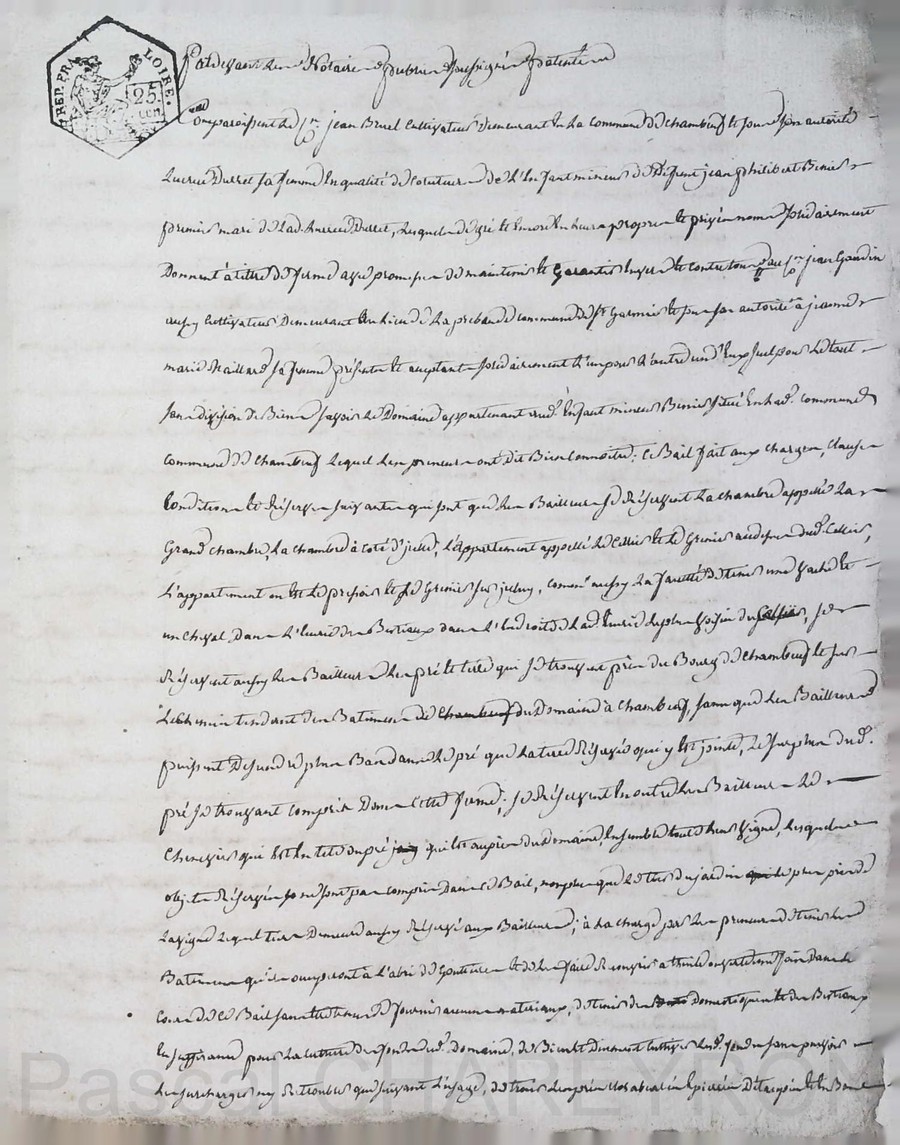 REP. FRA. LOIRE.
25
CEN.
Pardevant les Notaires publics soussignés patentés
Comparoissent le Sr. jean Bruel Cultivateur demeurant en la commune de chambeuf et sous son autorité
Lucrece Durret sa femme en qualité de tutrice de l'Enfant mineur de Défunt jean philibert
premier mari de lad. Durret, lesquels de gré et encore en leurs propres et privés noms solidairement
Donnent à titre de ferme avec promesse de maintenir et garantir envers et contre tous au Sr. jean Gaudin
aussy Cultivateur Demeurant au lieu de La prebande commune de St. Garmier et sous son autorité à jeanne
marie Maillard sa femme présents et acceptants solidairement l'un pour l'autre un d'Eux seul pour le tout
sans division de Biens savoir le Domaine appartenant aud. Enfant mineur situé en lad. commune
commune de Chambeuf lequel les preneurs ont dit Bien Connoitre; ce Bail fait aux charges, clauses
Conditions et Réserves suivantes qui sont que les Bailleurs se Réservent la chambre appellée La
Grande chambre, la chambre à coté d'icelle, l'appartement appellé le Cellier et le Grenier audessus dud. Cellier,
L'appartement ou est le pressoir et le Grenier sur iceluy, comme aussy la faculté de tenir une vache et
un cheval, dans l'Ecurie des Bestiaux dans l'Endroit de lad. Ecurie le plus voisin du Cellier, se
Réservent aussy les Bailleurs les pré et terre qui se trouvent près du Bourg de Chambeuf et sur
le chemin tendant des Batiments de Chambeuf du Domaine à Chambeuf, sans que les Bailleurs
puissent Descendre plus Bas dans le pré que la terre Réservée qui y est jointe, le surplus dud.
pré se trouvant compris Dans Cette ferme; se Réservent en outre les Bailleurs le
Chenevier qui est en tete du pré qui est au pied du Domaine, ensemble toutes les vignes, lesquels
objets Réservés ne sont pas compris dans ce Bail, non plus que le tiers du jardin le plus près de
la vigne lequel tiers Demeure aussy Réservé aux Bailleurs; à la charge par les preneurs de tenir les
Batiments qu'ils occuperont à l'abri de Goutieres et de les faire Recouvrir à thuile ouverte une fois dans le
Cours de ce Bail sans être tenus de fournir aucuns materiaux, de tenir des Domestiques et des Bestiaux
En suffisance pour la culture des fonds dud. Domaine, de Bien et Duement cultiver lesd. fonds sans pouvoir
les surcharger ny Retroubler que suivant l'usage, de trois
Pascal CHAREYRON